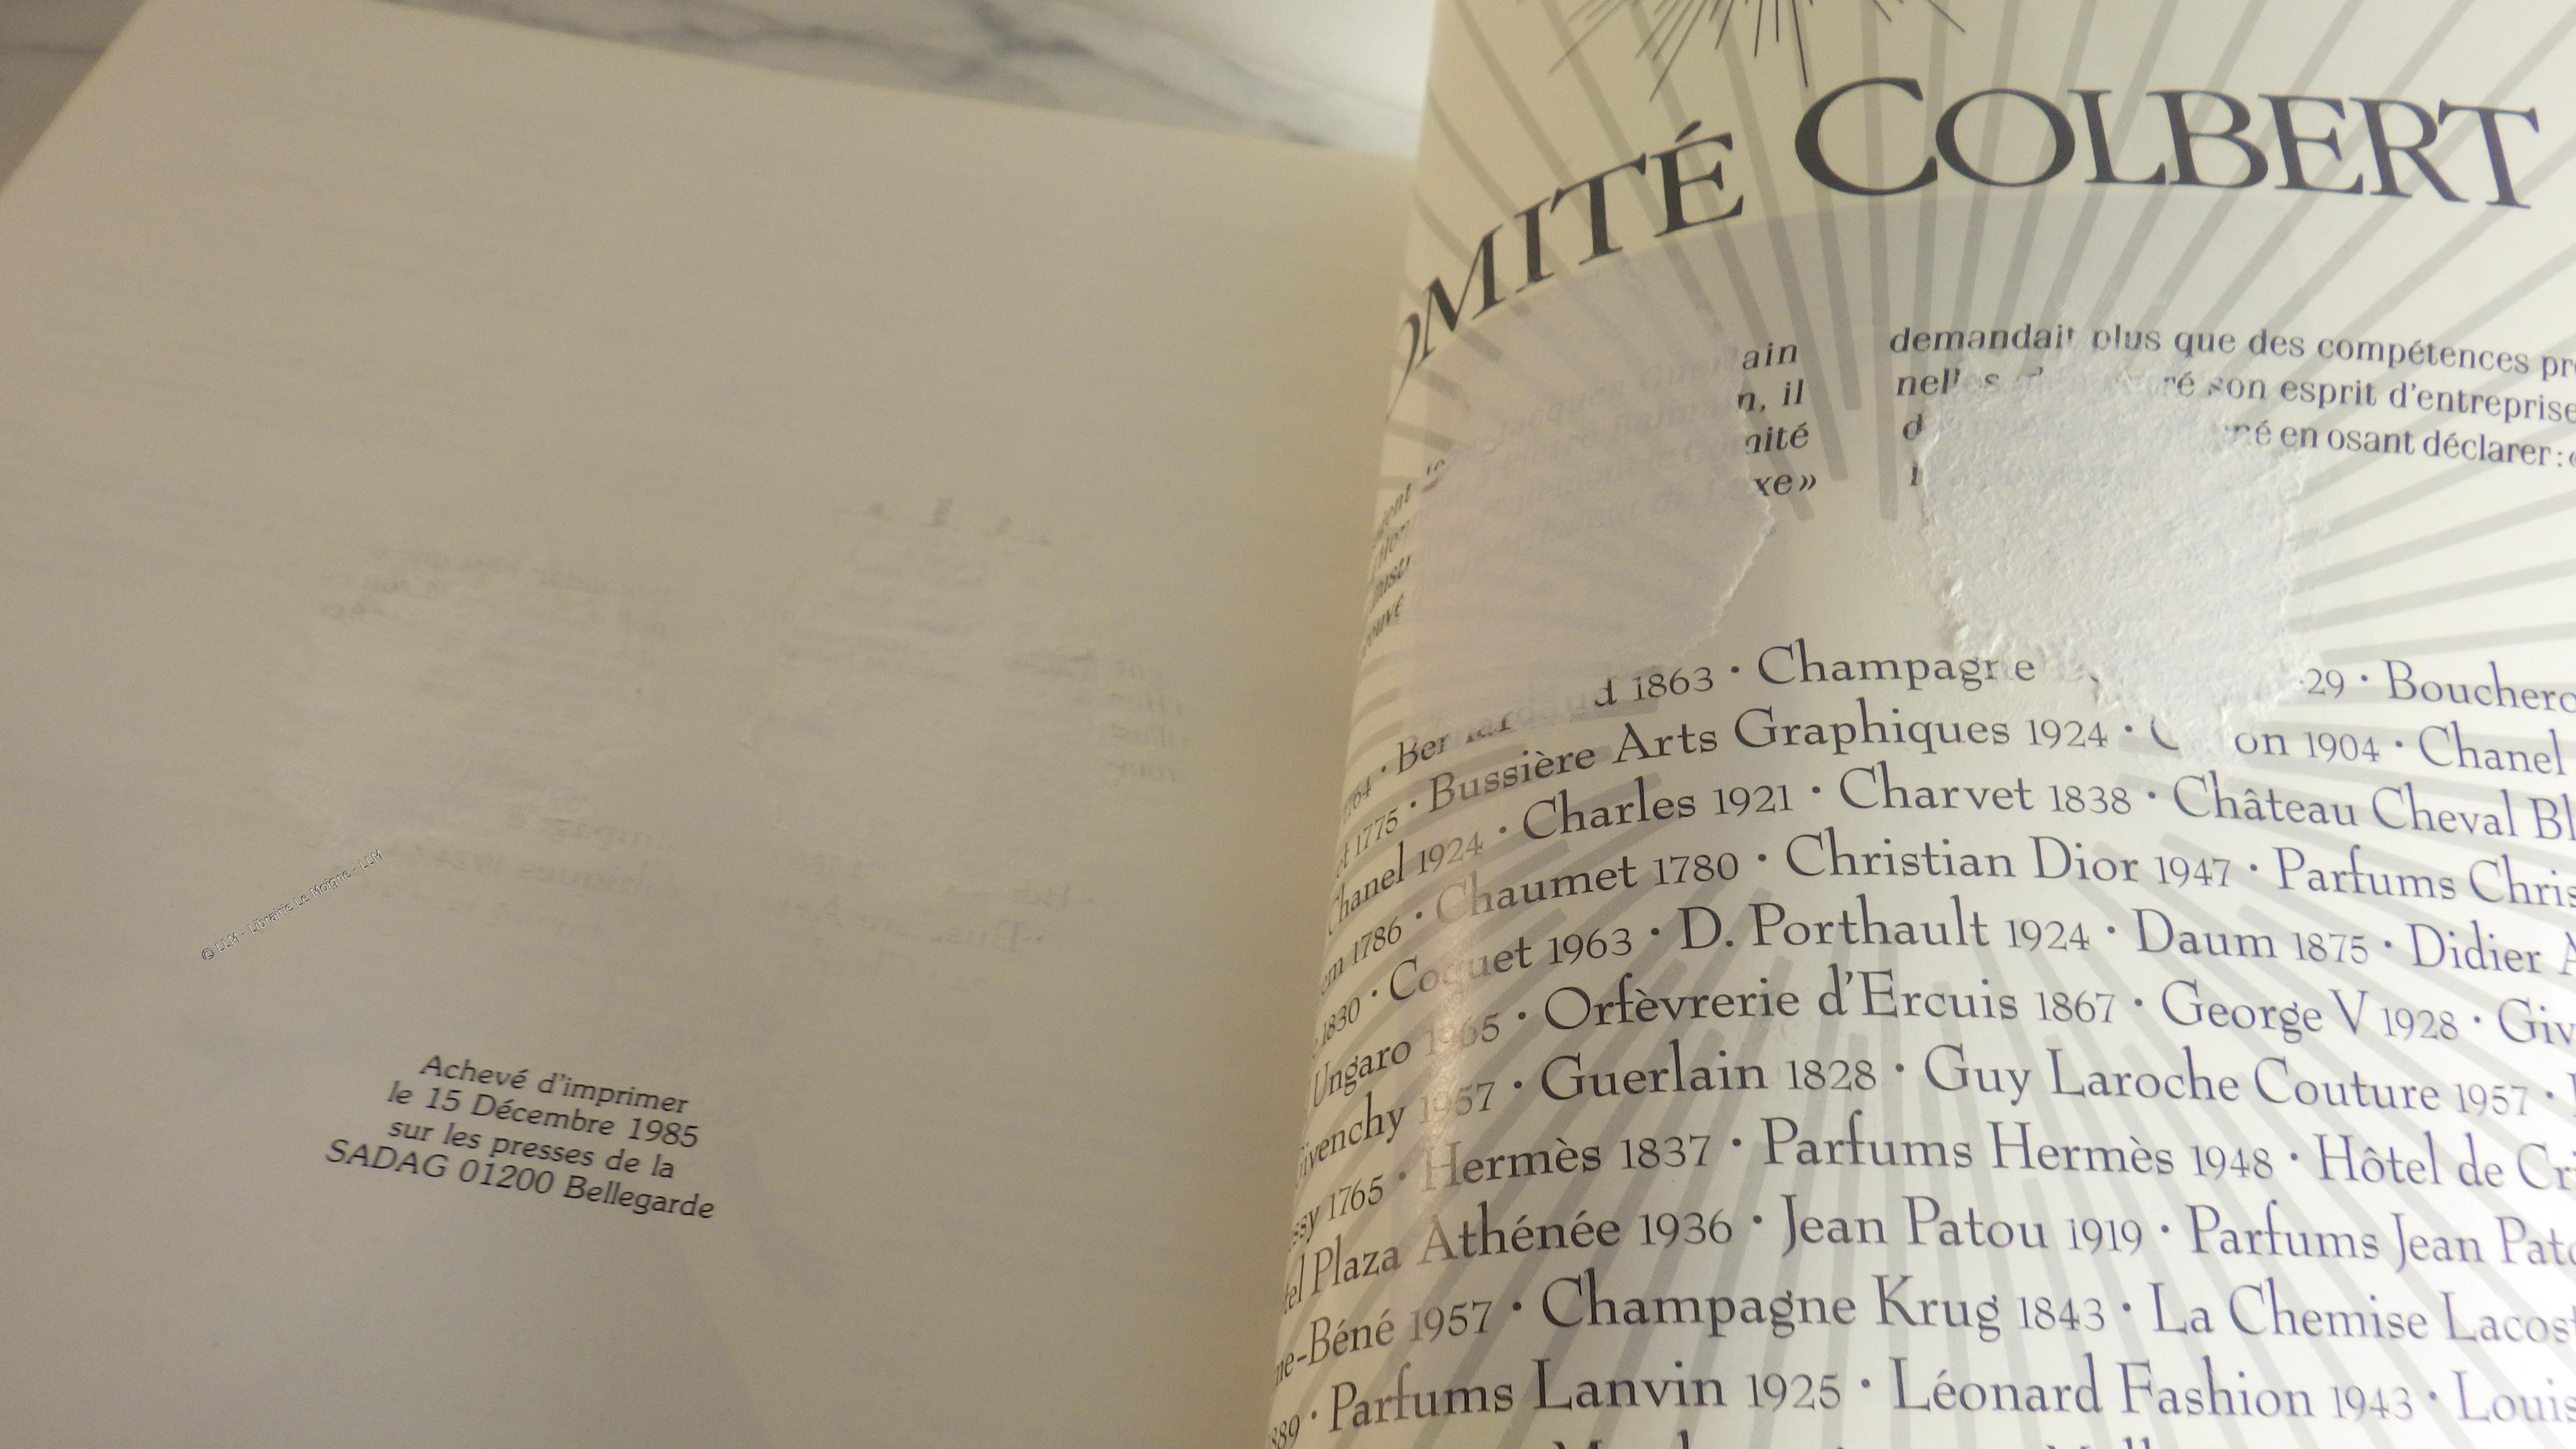 © LLM - Librairie Le Moigne - LLM
Achevé d'imprimer
le 15 Décembre 1985
sur les presses de la
SADAG 01200 Bellegarde
OMITÉ COLBERT
ain
n, il
nité
xe»
demandait plus que des compétences pr
son esprit d'entreprise
né en osant déclarer :
1863 · Champagne 29 · Bouchero
1775 · Bussière Arts Graphiques 1924 · on 1904 · Chanel
Chanel 1924 · Charles 1921 · Charvet 1838 · Château Cheval Bl
em 1786 · Chaumet 1780 · Christian Dior 1947 · Parfums Chris
1830 · Coquet 1963 · D. Porthault 1924 · Daum 1875 · Didier A
Ungaro 1965 · Orfèvrerie d'Ercuis 1867 · George V 1928 · Giv
Givenchy 1957 · Guerlain 1828 · Guy Laroche Couture 1957 ·
ssy 1765 · Hermès 1837 · Parfums Hermès 1948 · Hôtel de Cr
tel Plaza Athénée 1936 · Jean Patou 1919 · Parfums Jean Pato
ne-Béné 1957 · Champagne Krug 1843 · La Chemise Lacost
889 · Parfums Lanvin 1925 · Léonard Fashion 1943 · Louis